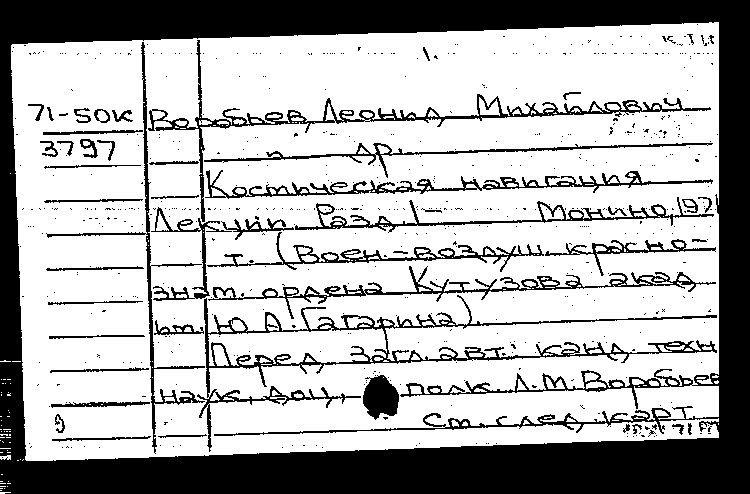 1.
71-50К Воробьев, Леонид Михайлович
3797 и др.
Космическая навигация
Лекции. Разд. 1- Монино, 1971
т. (Воен.-воздуш. красно-
знам. ордена Кутузова акад
им. Ю. А. Гагарина).
Перед загл. авт.: канд. техн
наук, доц., полк. Л. М. Воробьев
9 См. след. карт.